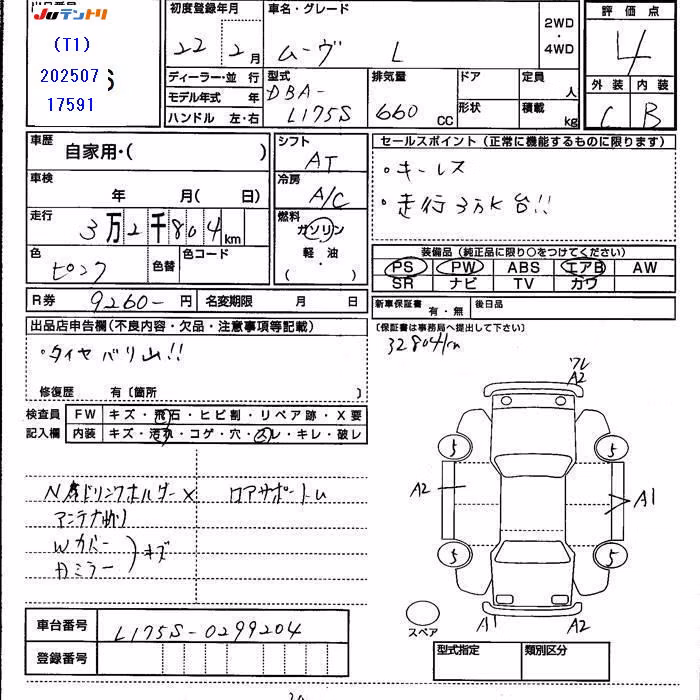 出品番号
Juテントリ
(T1)
202507
17591
初度登録年月
22年2月
車名・グレード
ムーヴ L
2WD
・
4WD
評価点
4
外装 内装
C B
ディーラー・並行
モデル年式 年
ハンドル 左・右
型式
DBA-
L175S
排気量
660 CC
ドア
形状
定員
人
積載
kg
車歴
自家用・( )
シフト
AT
セールスポイント (正常に機能するものに限ります)
・キーレス
・走行3万K台!!
車検
年 月( 日)
冷房
A/C
走行
3万2千804km
燃料
ガソリン
・
軽・油
( )
色
ピンク
色替
色コード
装備品 (純正品に限り○をつけてください)
PS PW ABS エアB AW
SR ナビ TV カワ
R券 9260- 円
名変期限 月 日
新車保証書
有・無
後日品
出品店申告欄(不良内容・欠品・注意事項等記載)
〔保証書は事務局へ提出して下さい〕
・タイヤバリ山!!
32804km
修復歴 有〔箇所 〕
検査員
記入欄
FW キズ・飛石・ヒビ割・リペア跡・X要
内装 キズ・汚れ・コゲ・穴・スレ・キレ・破レ
ワレ
A2
5 5
A2
A1
5 5
A1 A2
スペア
ドリンクホルダー×
ロアサポートム
アンテナ曲り
Wカバー
ミラー
キズ
車台番号 L175S-0299204
登録番号
型式指定 類別区分